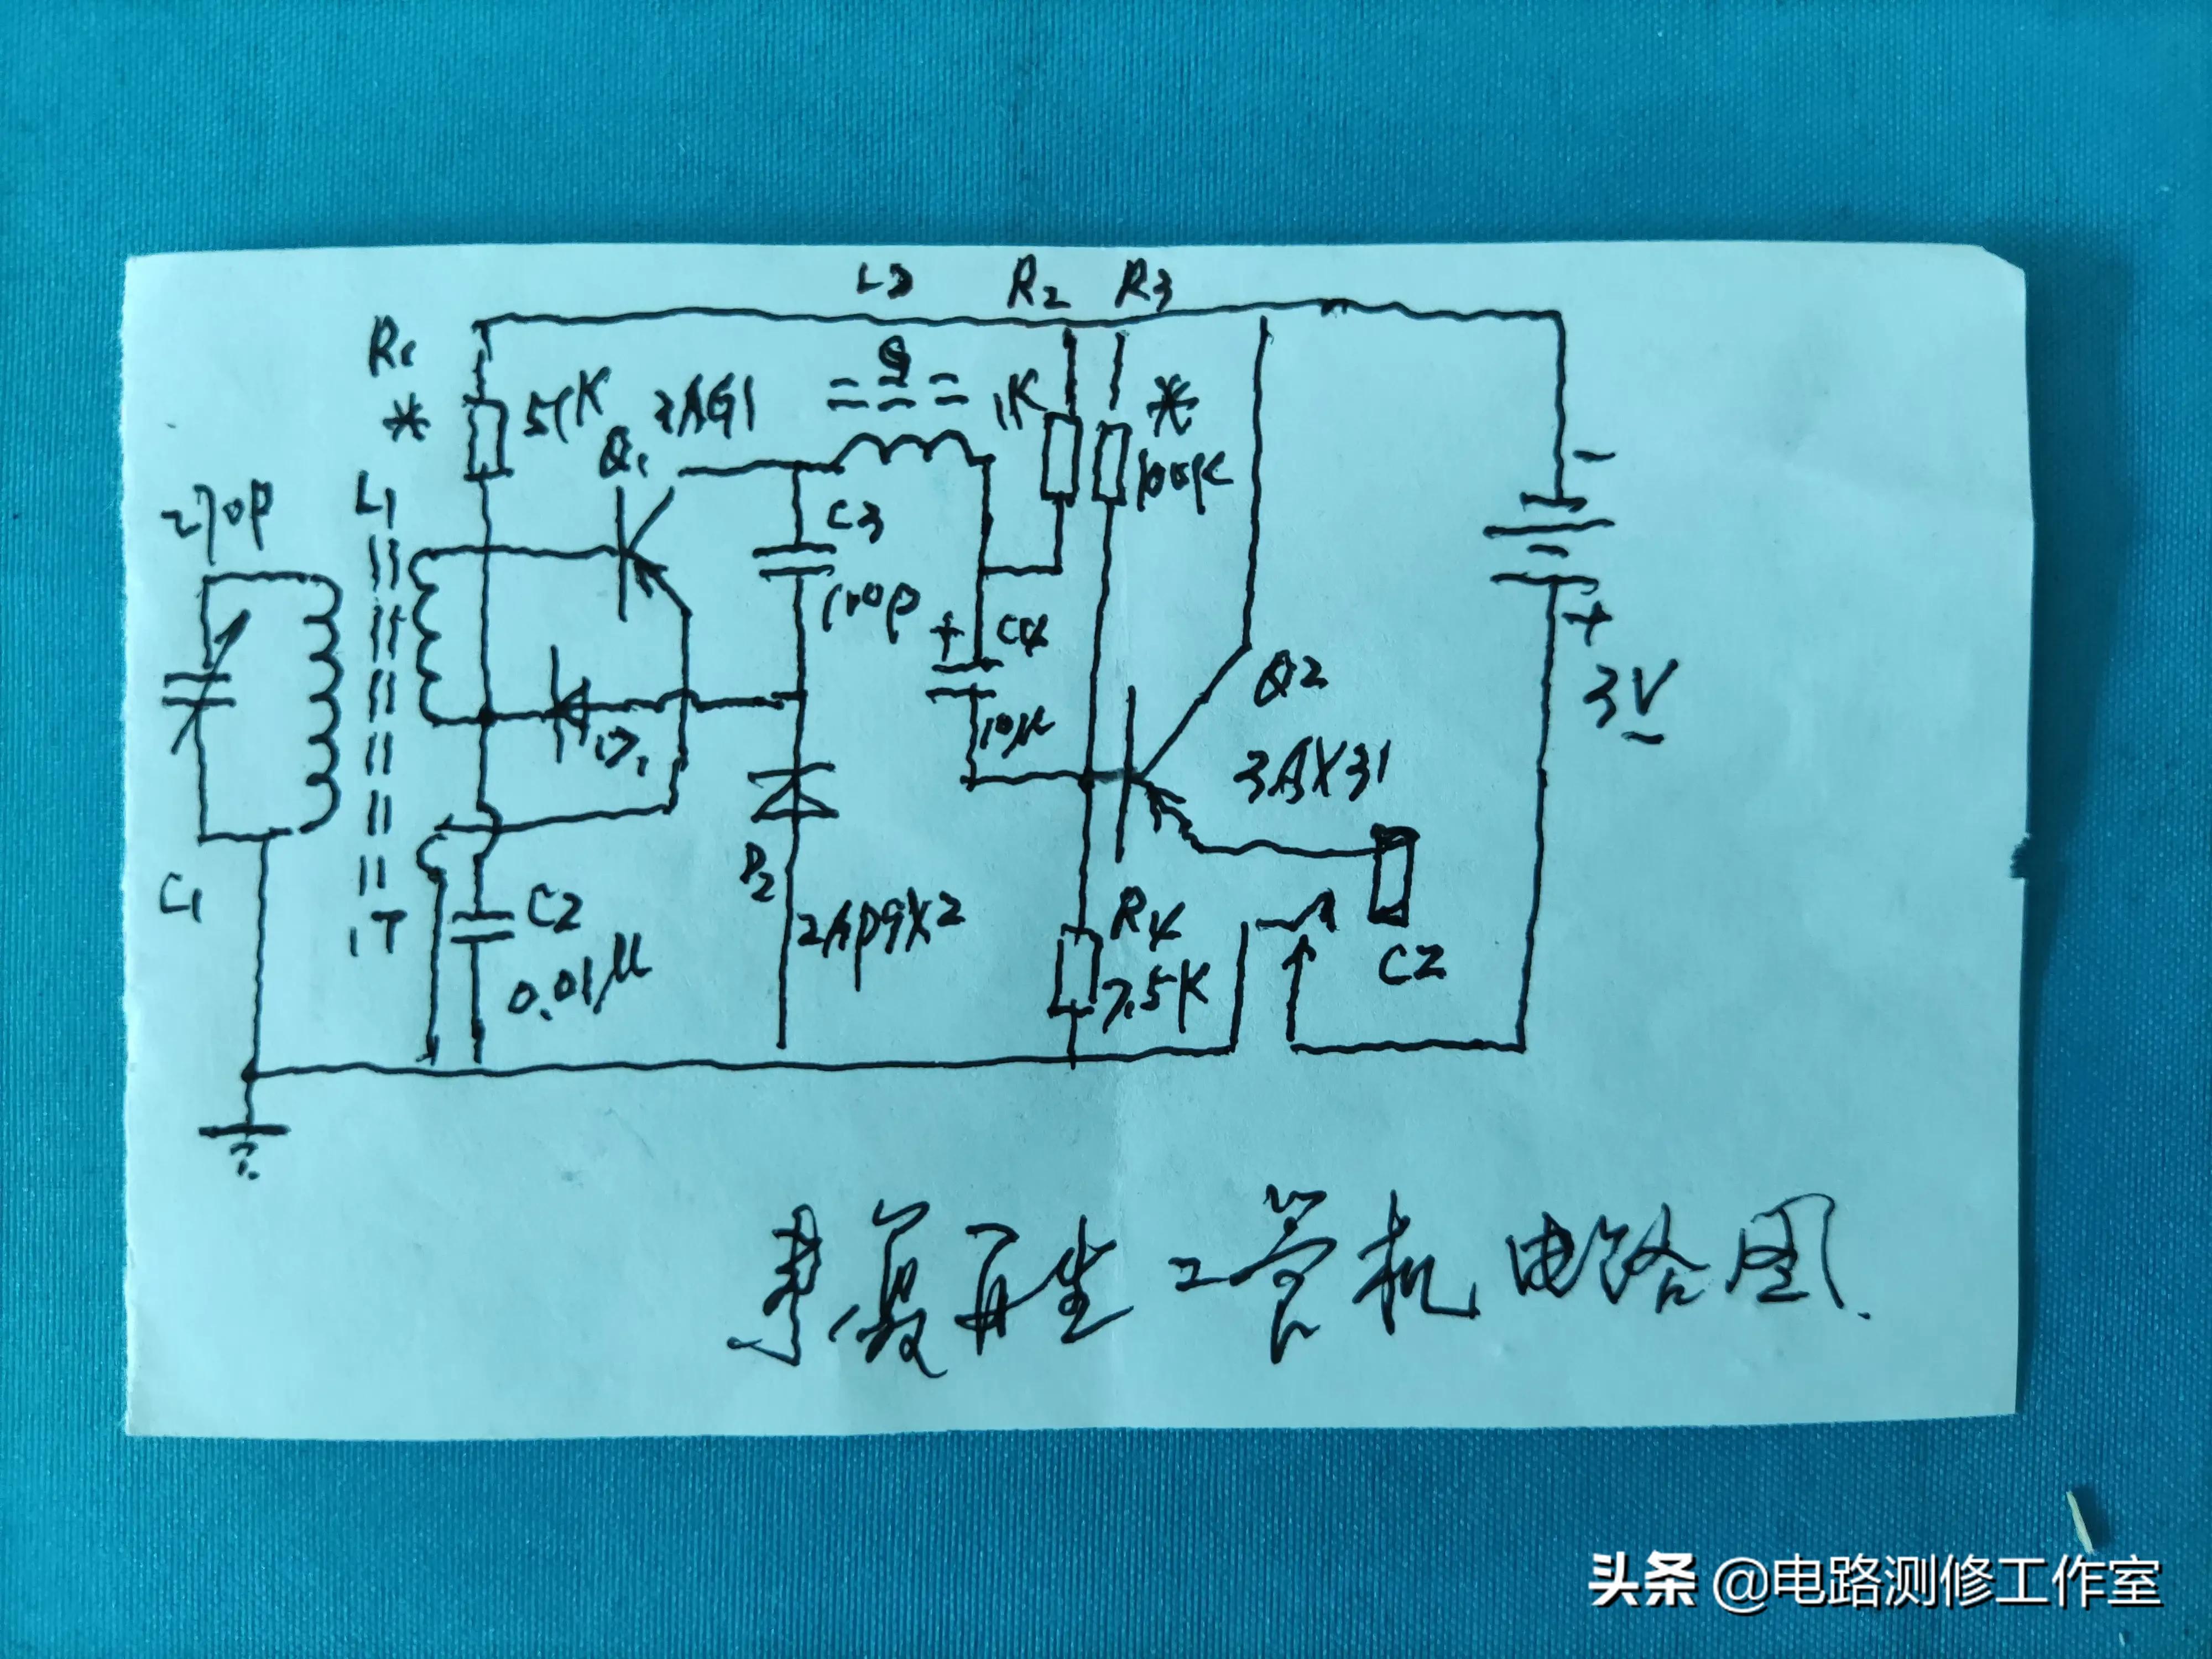 L2 R2 R3
R1
* 51K 3AG1 1K *
Q1 100K
270P L1
C3
100P
+ C4
10μ
D1
Q2
3AX31
-
+
3V
D2
2AP9X2
C1
1T
C2
0.01μ
R4
7.5K
CZ
来复再生2管机电路图.
头条 @电路测修工作室